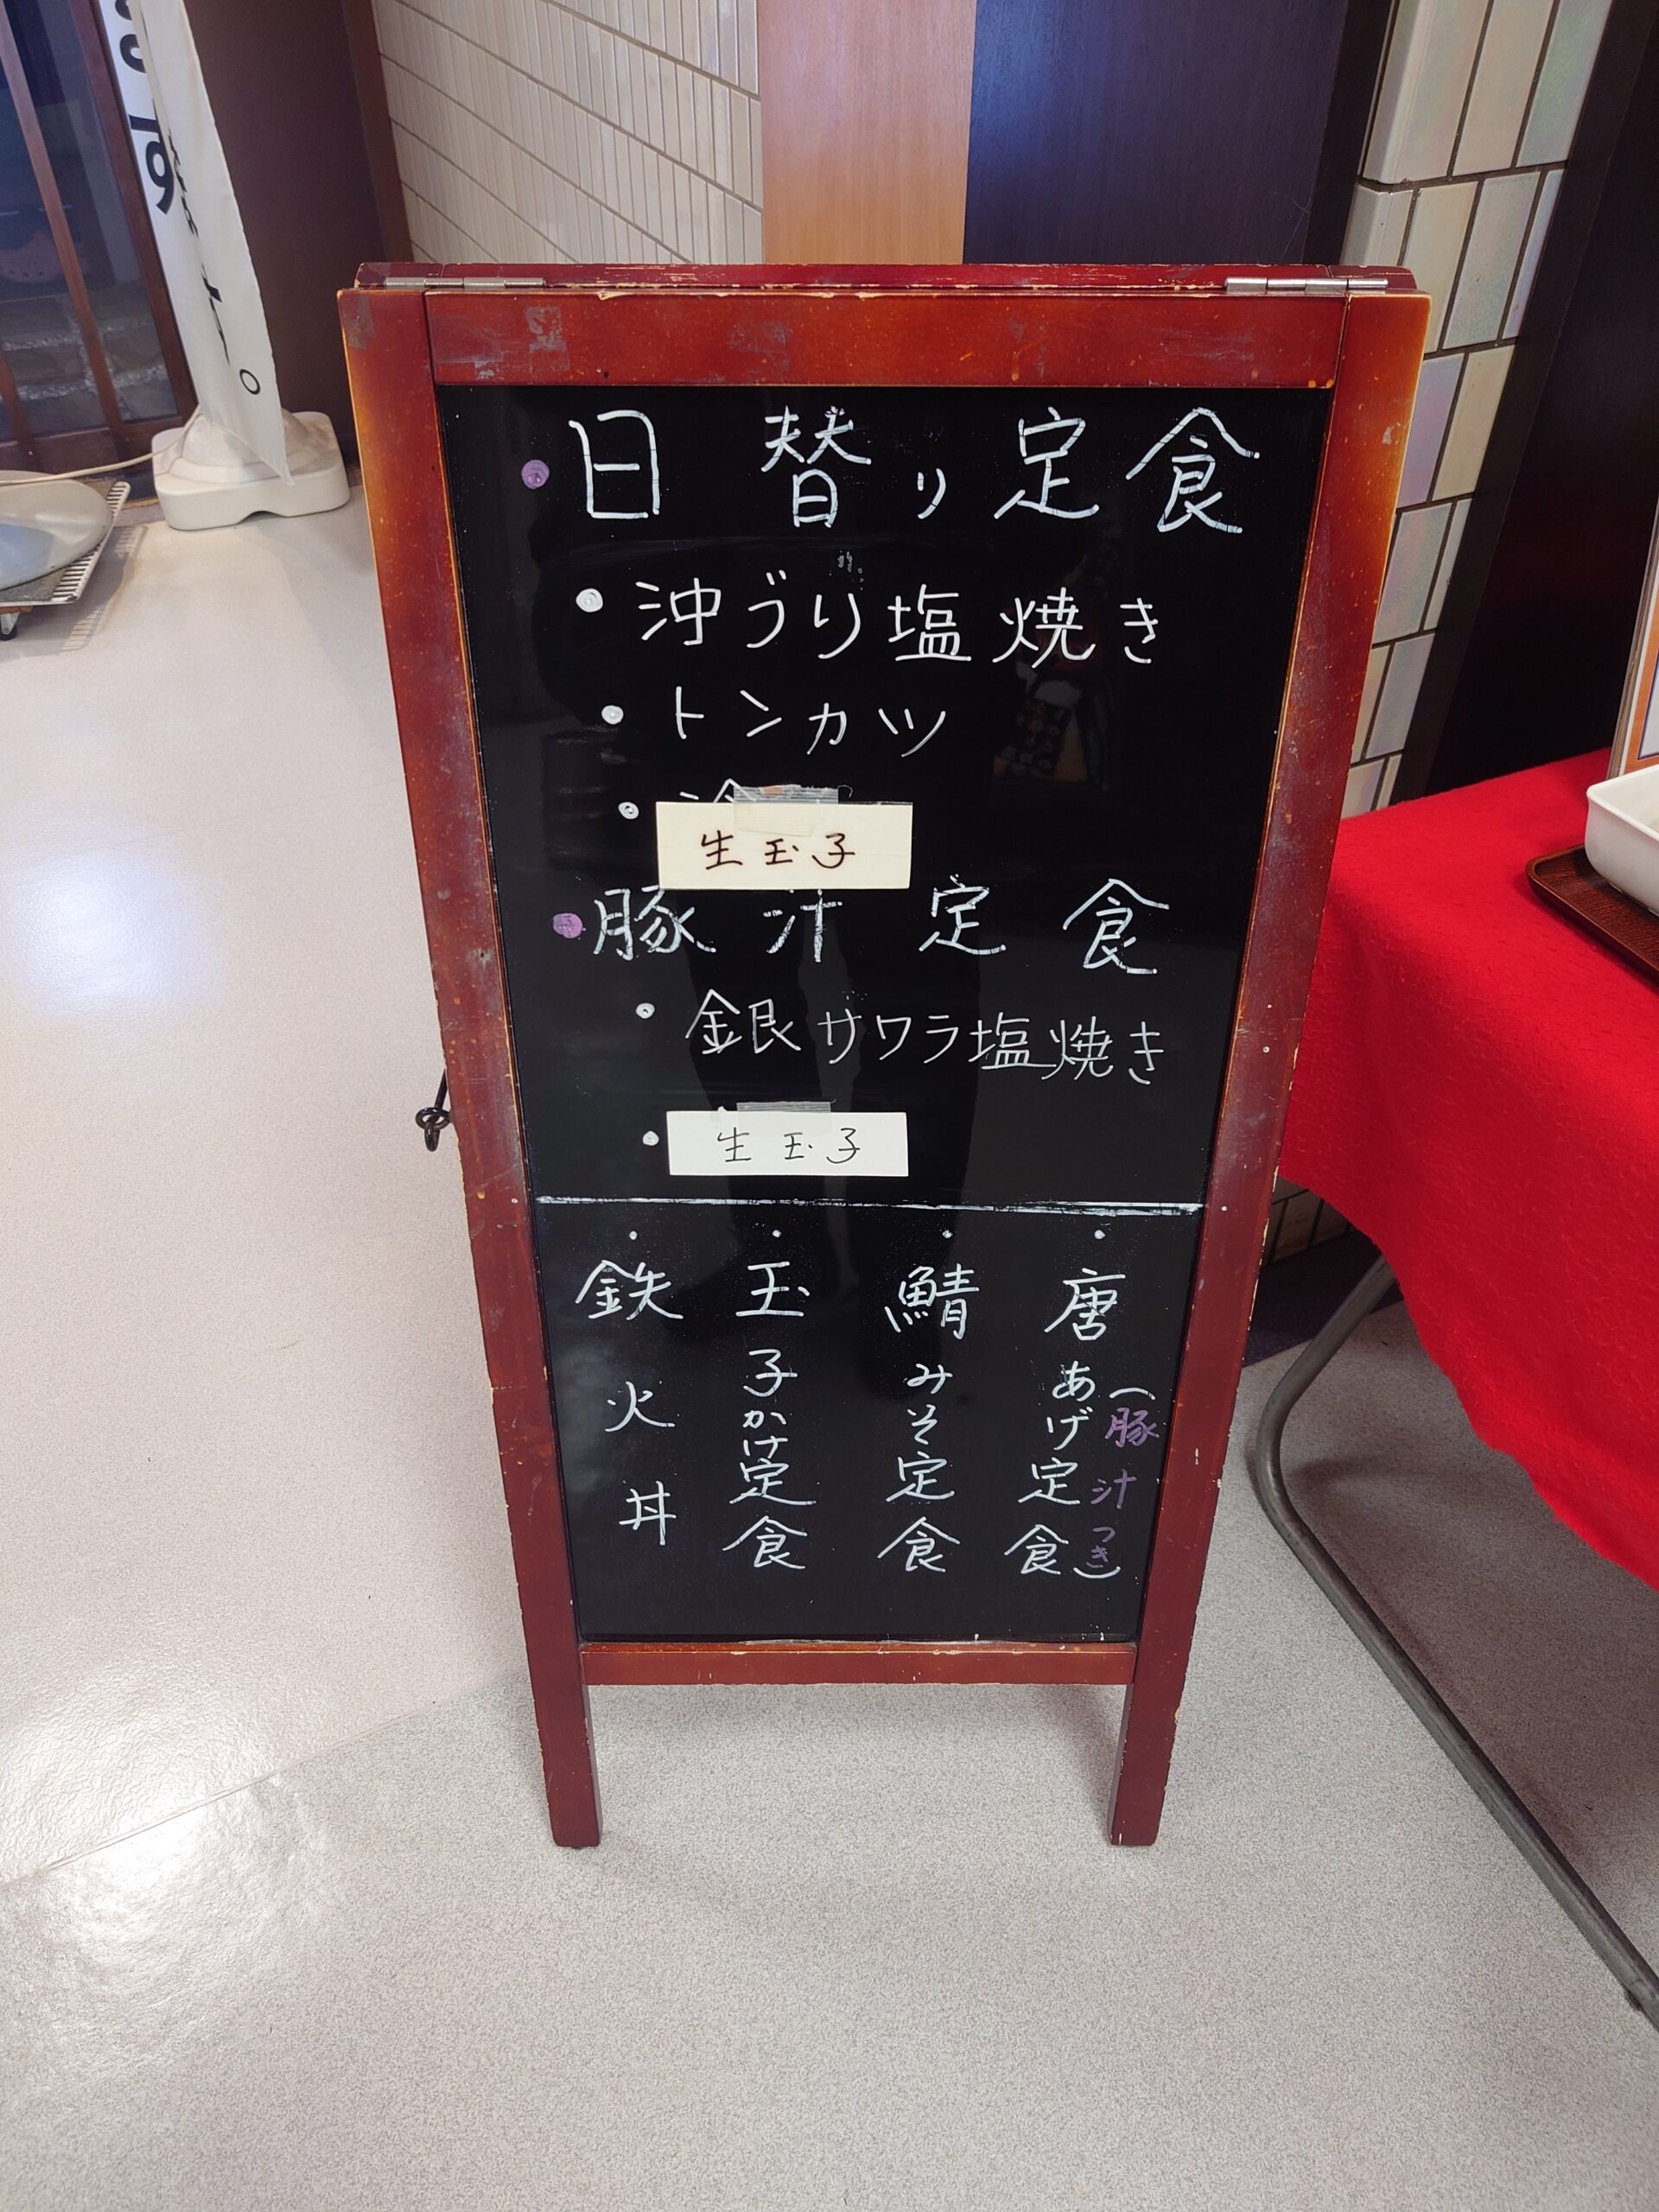 日替り定食
・沖ブリ塩焼き
・トンカツ
・生玉子
豚汁定食
・銀サワラ塩焼き
・生玉子
・唐あげ定食
(豚汁つき)
・鯖みそ定食
・玉子かけ定食
・鉄火丼